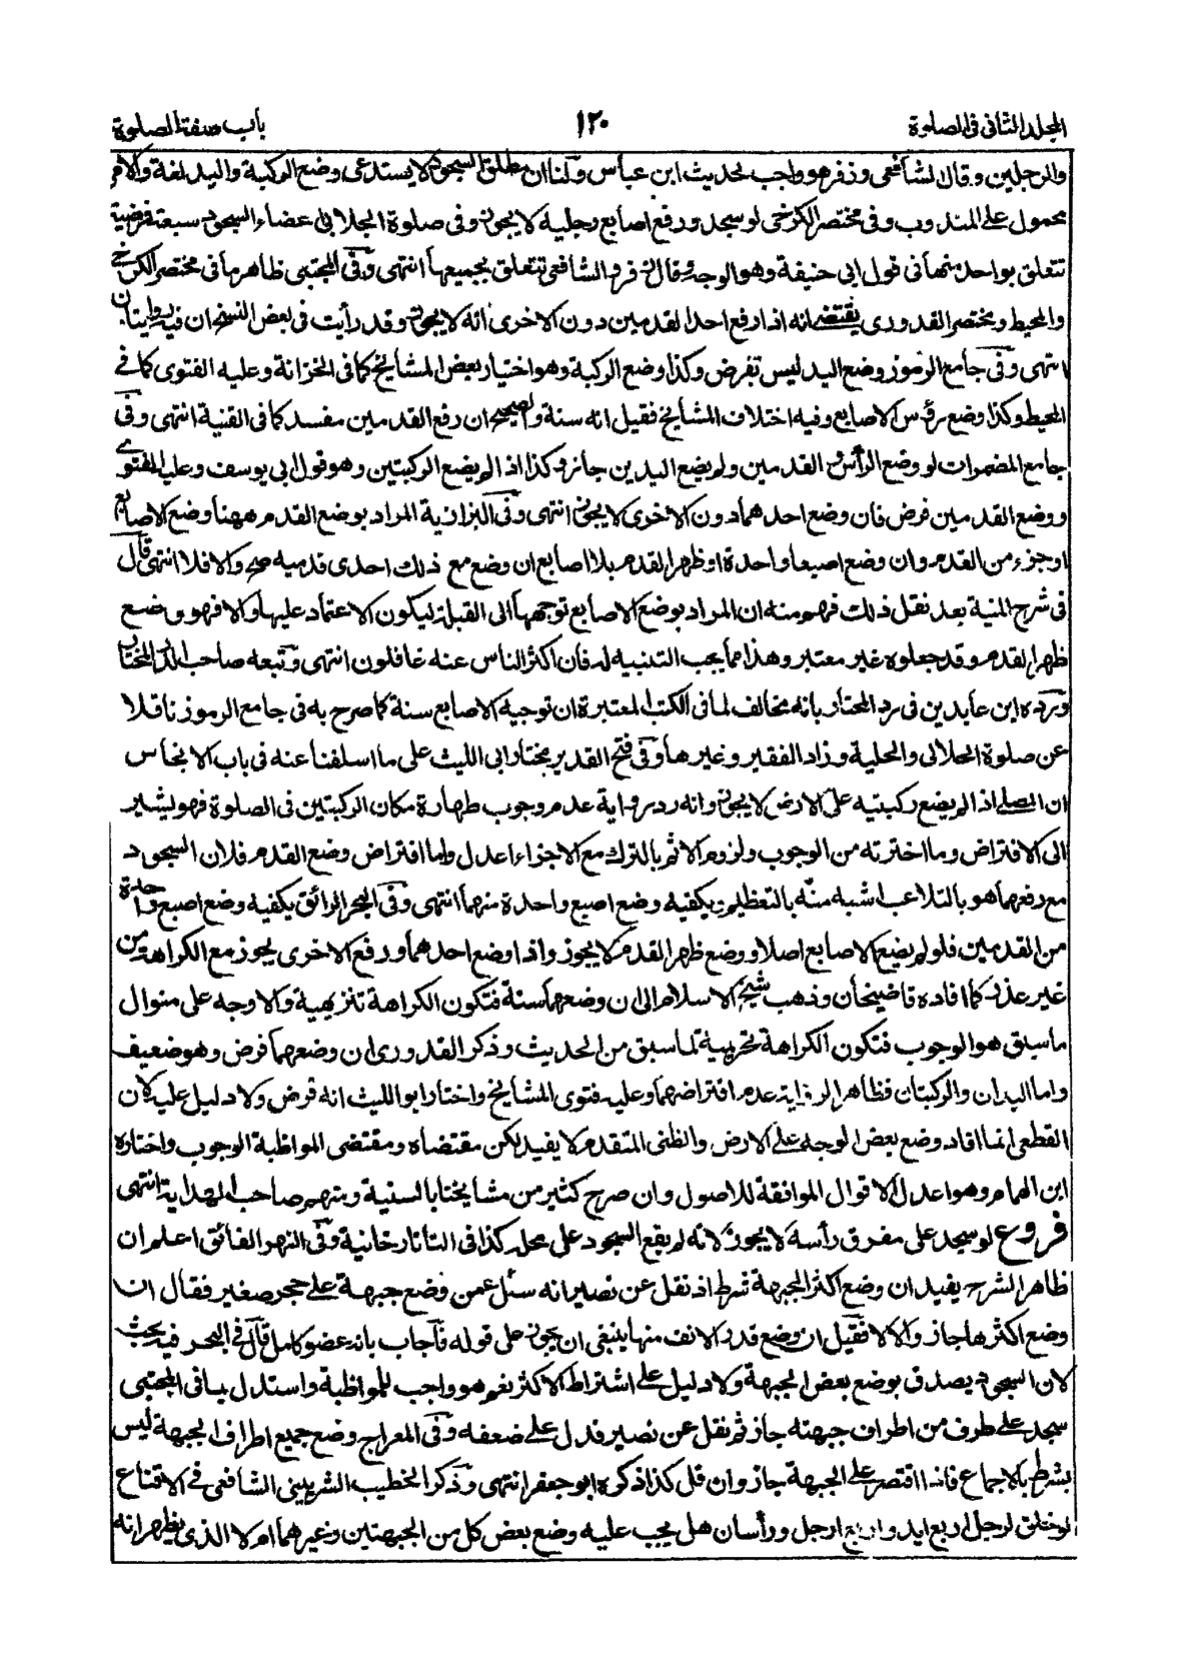 المجلد الثانى فى الصلوة
١٢٠
باب صفة الصلوة
والرجلين وقال الشافعى وزفر هو واجب لحديث ابن عباس ولنا ان مطلق السجود لا يستدعى وضع الركبة واليد لغة والامر
محمول على المندوب وفى مختصر الكرخى لو سجد ورفع اصابع رجليه لا يجوز وفى صلوة الجلابى اعضاء السجود سبعة فرضية
تتعلق بواحد منها فى قول ابى حنيفة وهو الوجه وقال زفر والشافعى تتعلق بجميعها انتهى وفى المجتبى ظاهر ما فى مختصر الكرخى
والمحيط ومختصر القدورى يقتضى انه اذا رفع احدا لقدمين دون الاخرى انه لا يجوز وقد رأيت فى بعض النسخ ان فيه روايتان
انتهى وفى جامع الرموز وضع اليد ليس بفرض وكذا وضع الركبة وهو اختيار بعض المشايخ كما فى الخزانة وعليه الفتوى كما فى
المحيط وكذا وضع رؤس الاصابع وفيه اختلاف المشايخ فقيل انه سنة والصحيح ان رفع القدمين مفسد كما فى القنية انتهى وفى
جامع المضمرات لو وضع الرأس و القدمين ولم يضع اليدين جاز وكذا اذا لم يضع الركبتين وهو قول ابى يوسف وعليه الفتوى
ووضع القدمين فرض فان وضع احدهما دون الاخرى لا يجوز انتهى وفى البزازية المراد بوضع القدم ههنا وضع الاصابع
او جزء من القدم وان وضع اصبعا واحدة او ظهر القدم بلا اصابع ان وضع مع ذلك احدى قدميه صح والا فلا انتهى قال
فى شرح المنية بعد نقل ذلك فهم منه ان المراد بوضع الاصابع توجهها الى القبلة ليكون الاعتماد عليها والا فهو وضع
ظهر القدم وقد جعلوه غير معتبر وهذا مما يجب التنبيه له فان اكثر الناس عنه غافلون انتهى وتبعه صاحب الدر المختار
ورده ابن عابدين فى رد المحتار بانه مخالف لما فى الكتب المعتبرة ان توجيه الاصابع سنة كما صرح به فى جامع الرموز ناقلا
عن صلوة الجلابى والحلية وزاد الفقير وغيرها وفى فتح القدير مختار ابى الليث على ما اسلفنا عنه فى باب الانجاس
ان المصلى اذا لم يضع ركبتيه على الارض لا يجوز وانه رد رواية عدم وجوب طهارة مكان الركبتين فى الصلوة فهو يشير
الى الافتراض وما اخترته من الوجوب ولزوم الاثم بالترك مع الاجزاء اعدل واما افتراض وضع القدم فلان السجود
مع رفعهما هو بالتلاعب اشبه منه بالتعظيم ويكفيه وضع اصبع واحدة منهما انتهى وفى البحر الرائق يكفيه وضع اصبع واحدة
من القدمين فلو لم يضع الاصابع اصلا ووضع ظهر القدم لا يجوز واذا وضع احدهما ورفع الاخرى يجوز مع الكراهة من
غير عذر كما افاده قاضيخان وذهب شيخ الاسلام الى ان وضعهما سنة فتكون الكراهة تنزيهية والاوجه على منوال
ما سبق هو الوجوب فتكون الكراهة تحريمية لما سبق من الحديث وذكر القدورى ان وضعهما فرض وهو ضعيف
واما اليدان والركبتان فظاهر الرواية عدم افتراضهما وعليه فتوى المشايخ واختار ابو الليث انه فرض ولا دليل عليه لان
القطعى انما افاد وضع بعض الوجه على الارض والظنى المتقدم لا يفيد لكن مقتضاه ومقتضى المواظبة الوجوب واختاره
ابن الهمام وهو اعدل الاقوال الموافقة للاصول وان صرح كثير من مشايخنا بالسنية ومنهم صاحب الهداية انتهى
فروع لو سجد على مفرق رأسه لا يجوز لانه لم يقع السجود على محله كذا فى التاتارخانية وفى النهر الفائق اعلم ان
ظاهر الشرح يفيد ان وضع اكثر الجبهة شرط اذ نقل عن نصير انه سئل عمن وضع جبهة على حجر صغير فقال ان
وضع اكثرها جاز والا لا فقيل ان وضع قدر الانف منها ينبغى ان يجوز على قوله فاجاب بانه عضو كامل قال فى البحر فيه بحث
لان السجود يصدق بوضع بعض الجبهة ولا دليل على اشتراط الاكثر نعم هو واجب للمواظبة واستدل بما فى المجتبى
سجد على طرف من اطراف جبهته جاز ثم نقل عن نصير فدل على ضعفه وفى المعراج وضع جميع اطراف الجبهة ليس
بشرط بالاجماع فاذا اقتصر على الجبهة جاز وان قل كذا ذكره ابو جعفر انتهى وذكر الخطيب الشربينى الشافعى فى الاقناع
لو خلق لرجل اربع ايد واربع ارجل ورأسان هل يجب عليه وضع بعض كل من الجبهتين وغيرهما ام لا الذى يظهر انه